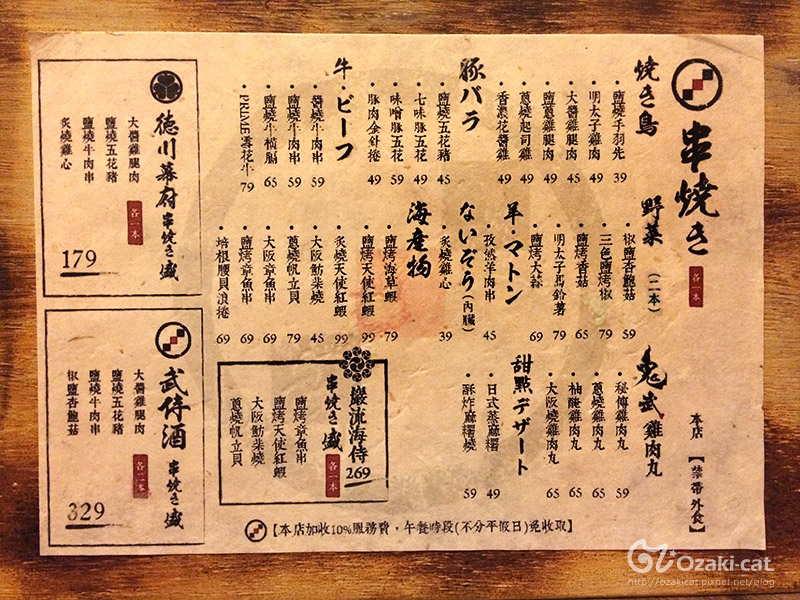 串焼き 各一本
焼き鳥
・鹽燒手羽先 39
・明太子雞肉 49
・大醬雞腿肉 45
・鹽蔥雞腿肉 49
・蔥燒起司雞 49
・香濃花醬雞 49
豚バラ
・鹽燒五花豬 45
・七味豚五花 49
・味噌豚五花 59
・豚肉金針捲 49
牛・ビーフ
・醬燒牛肉串 59
・鹽燒牛肉串 59
・鹽燒牛橫膈 65
・PRIME雪花牛 79
野菜 (二本)
・椒鹽杏鮑菇 59
・三色鹽烤椒 79
・鹽烤香菇 65
・明太子馬鈴薯 79
・鹽烤大蒜 69
羊・マトン
・孜然羊肉串 45
ないぞう(內臟)
・炙燒雞心 39
海産物
・鹽烤海草蝦 79
・鹽烤天使紅蝦 99
・炙燒天使紅蝦 99
・大阪魴柴燒 45
・蔥燒帆立貝 79
・大阪章魚串 69
・鹽烤章魚串 69
・培根腰貝浪捲 69
鬼武雞肉丸
・秘傳雞肉丸 59
・蔥燒雞肉丸 65
・柚醃雞肉丸 65
・大阪燒雞肉丸 65
甜點デザート
・日式蒸麻糬 49
・酥炸麻糬燒 59
本店 【禁帶外食】
徳川幕府 串焼き盛
各一本
大醬雞腿肉
鹽燒五花豬
鹽燒牛肉串
炙燒雞心
179
武侍酒 串焼き盛
各二本
大醬雞腿肉
鹽燒五花豬
鹽燒牛肉串
椒鹽杏鮑菇
329
巖流海侍 269
串焼き盛 各一本
鹽烤章魚串
鹽烤天使紅蝦
大阪魴柴燒
蔥燒帆立貝
【本店加收10%服務費，午餐時段(不分平假日)免收取】
Ozaki-cat
http://ozakicat.pixnet.net/blog